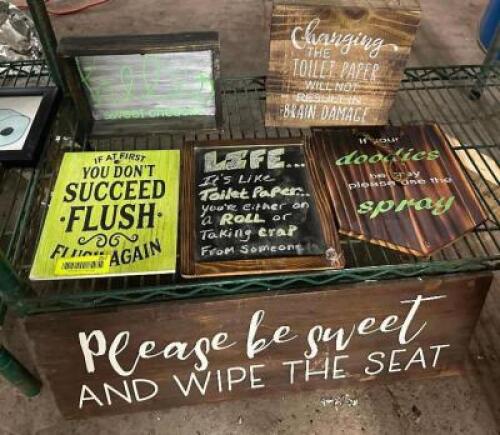 sweet cheeks
Changing
THE
TOILET PAPER
WILL NOT
RESULT IN
BRAIN DAMAGE
IF AT FIRST
YOU DON'T
SUCCEED
·FLUSH·
FLUSH AGAIN
LIFE...
It's Like
Toilet Paper..
you're Either on
a ROLL or
Taking crap
From Someone
If your
doodies
be
please use the
spray
Please be sweet
AND WIPE THE SEAT